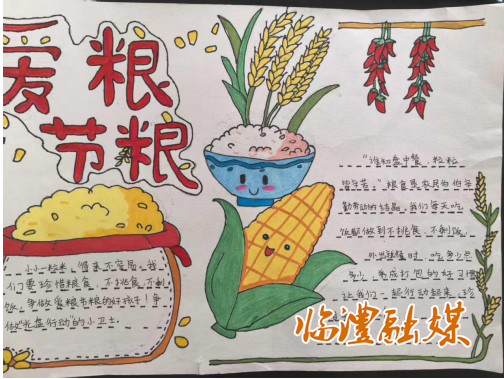 爱粮
节粮
小小一粒米，得来不容易，我
们要珍惜粮食，不挑食，不剩
饭，争做爱粮节粮的好孩子！争
做“光盘行动”的小卫士。
“谁知盘中餐，粒粒
皆辛苦。”粮食是农民伯伯辛
勤劳动的结晶，我们每天吃
饭都做到不挑食，不剩饭。
外出就餐时，吃多少点
多少，养成打包的好习惯
让我们一起行动起来，珍
临澧融媒